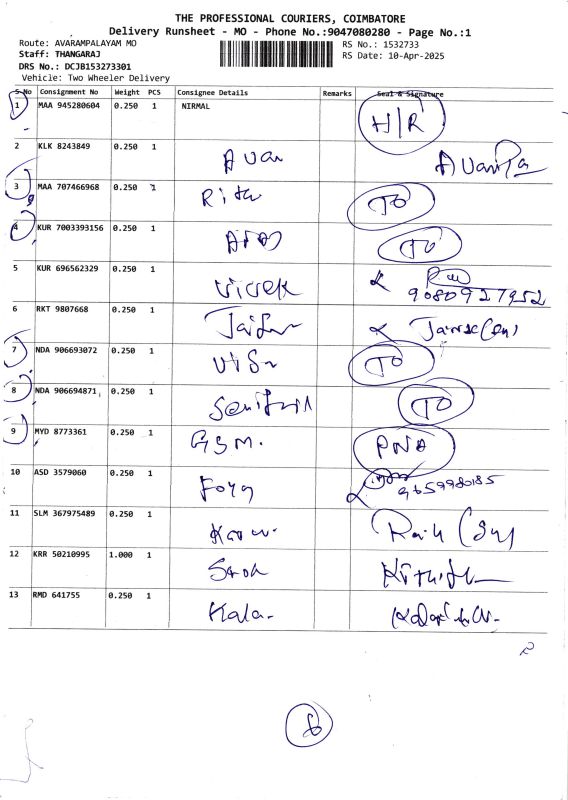 THE PROFESSIONAL COURIERS, COIMBATORE
Delivery Runsheet - MO - Phone No.:9047080280 - Page No.:1
Route: AVARAMPALAYAM MO RS No.: 1532733
Staff: THANGARAJ RS Date: 10-Apr-2025
DRS No.: DCJB153273301
Vehicle: Two Wheeler Delivery
S No Consignment No Weight PCS Consignee Details Remarks Seal & Signature
1 MAA 945280604 0.250 1 NIRMAL H/R
2 KLK 8243849 0.250 1
3 MAA 707466968 0.250 1 TO
4 KUR 7003393156 0.250 1 TO
5 KUR 696562329 0.250 1 Vivek
9080927952
6 RKT 9807668 0.250 1
7 NDA 906693072 0.250 1 TO
8 NDA 906694871 0.250 1 TO
9 MYD 8773361 0.250 1 GSM.
10 ASD 3579060 0.250 1 9659980185
11 SLM 367975489 0.250 1
12 KRR 50210995 1.000 1
13 RMD 641755 0.250 1 Kala